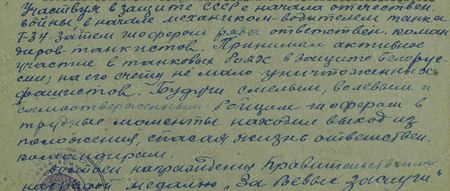 Участвуя в защите СССР с начала отечествен.
войны в начале механиком-водителем танка
Т-34 затем шофером ряда ответствен. коман
диров-танкистов. Принимал активное
участие в танковых боях в защите Белорус-
сии; на его счету не мало уничтоженных
фашистов. Будучи смелым, волевым и
самоотверженным бойцом-шофером в
трудные моменты находил выход из
положения, спасая жизнь ответствен.
командирам.
достоен награждения Правительственной
наградой медалью „За боевые заслуги"